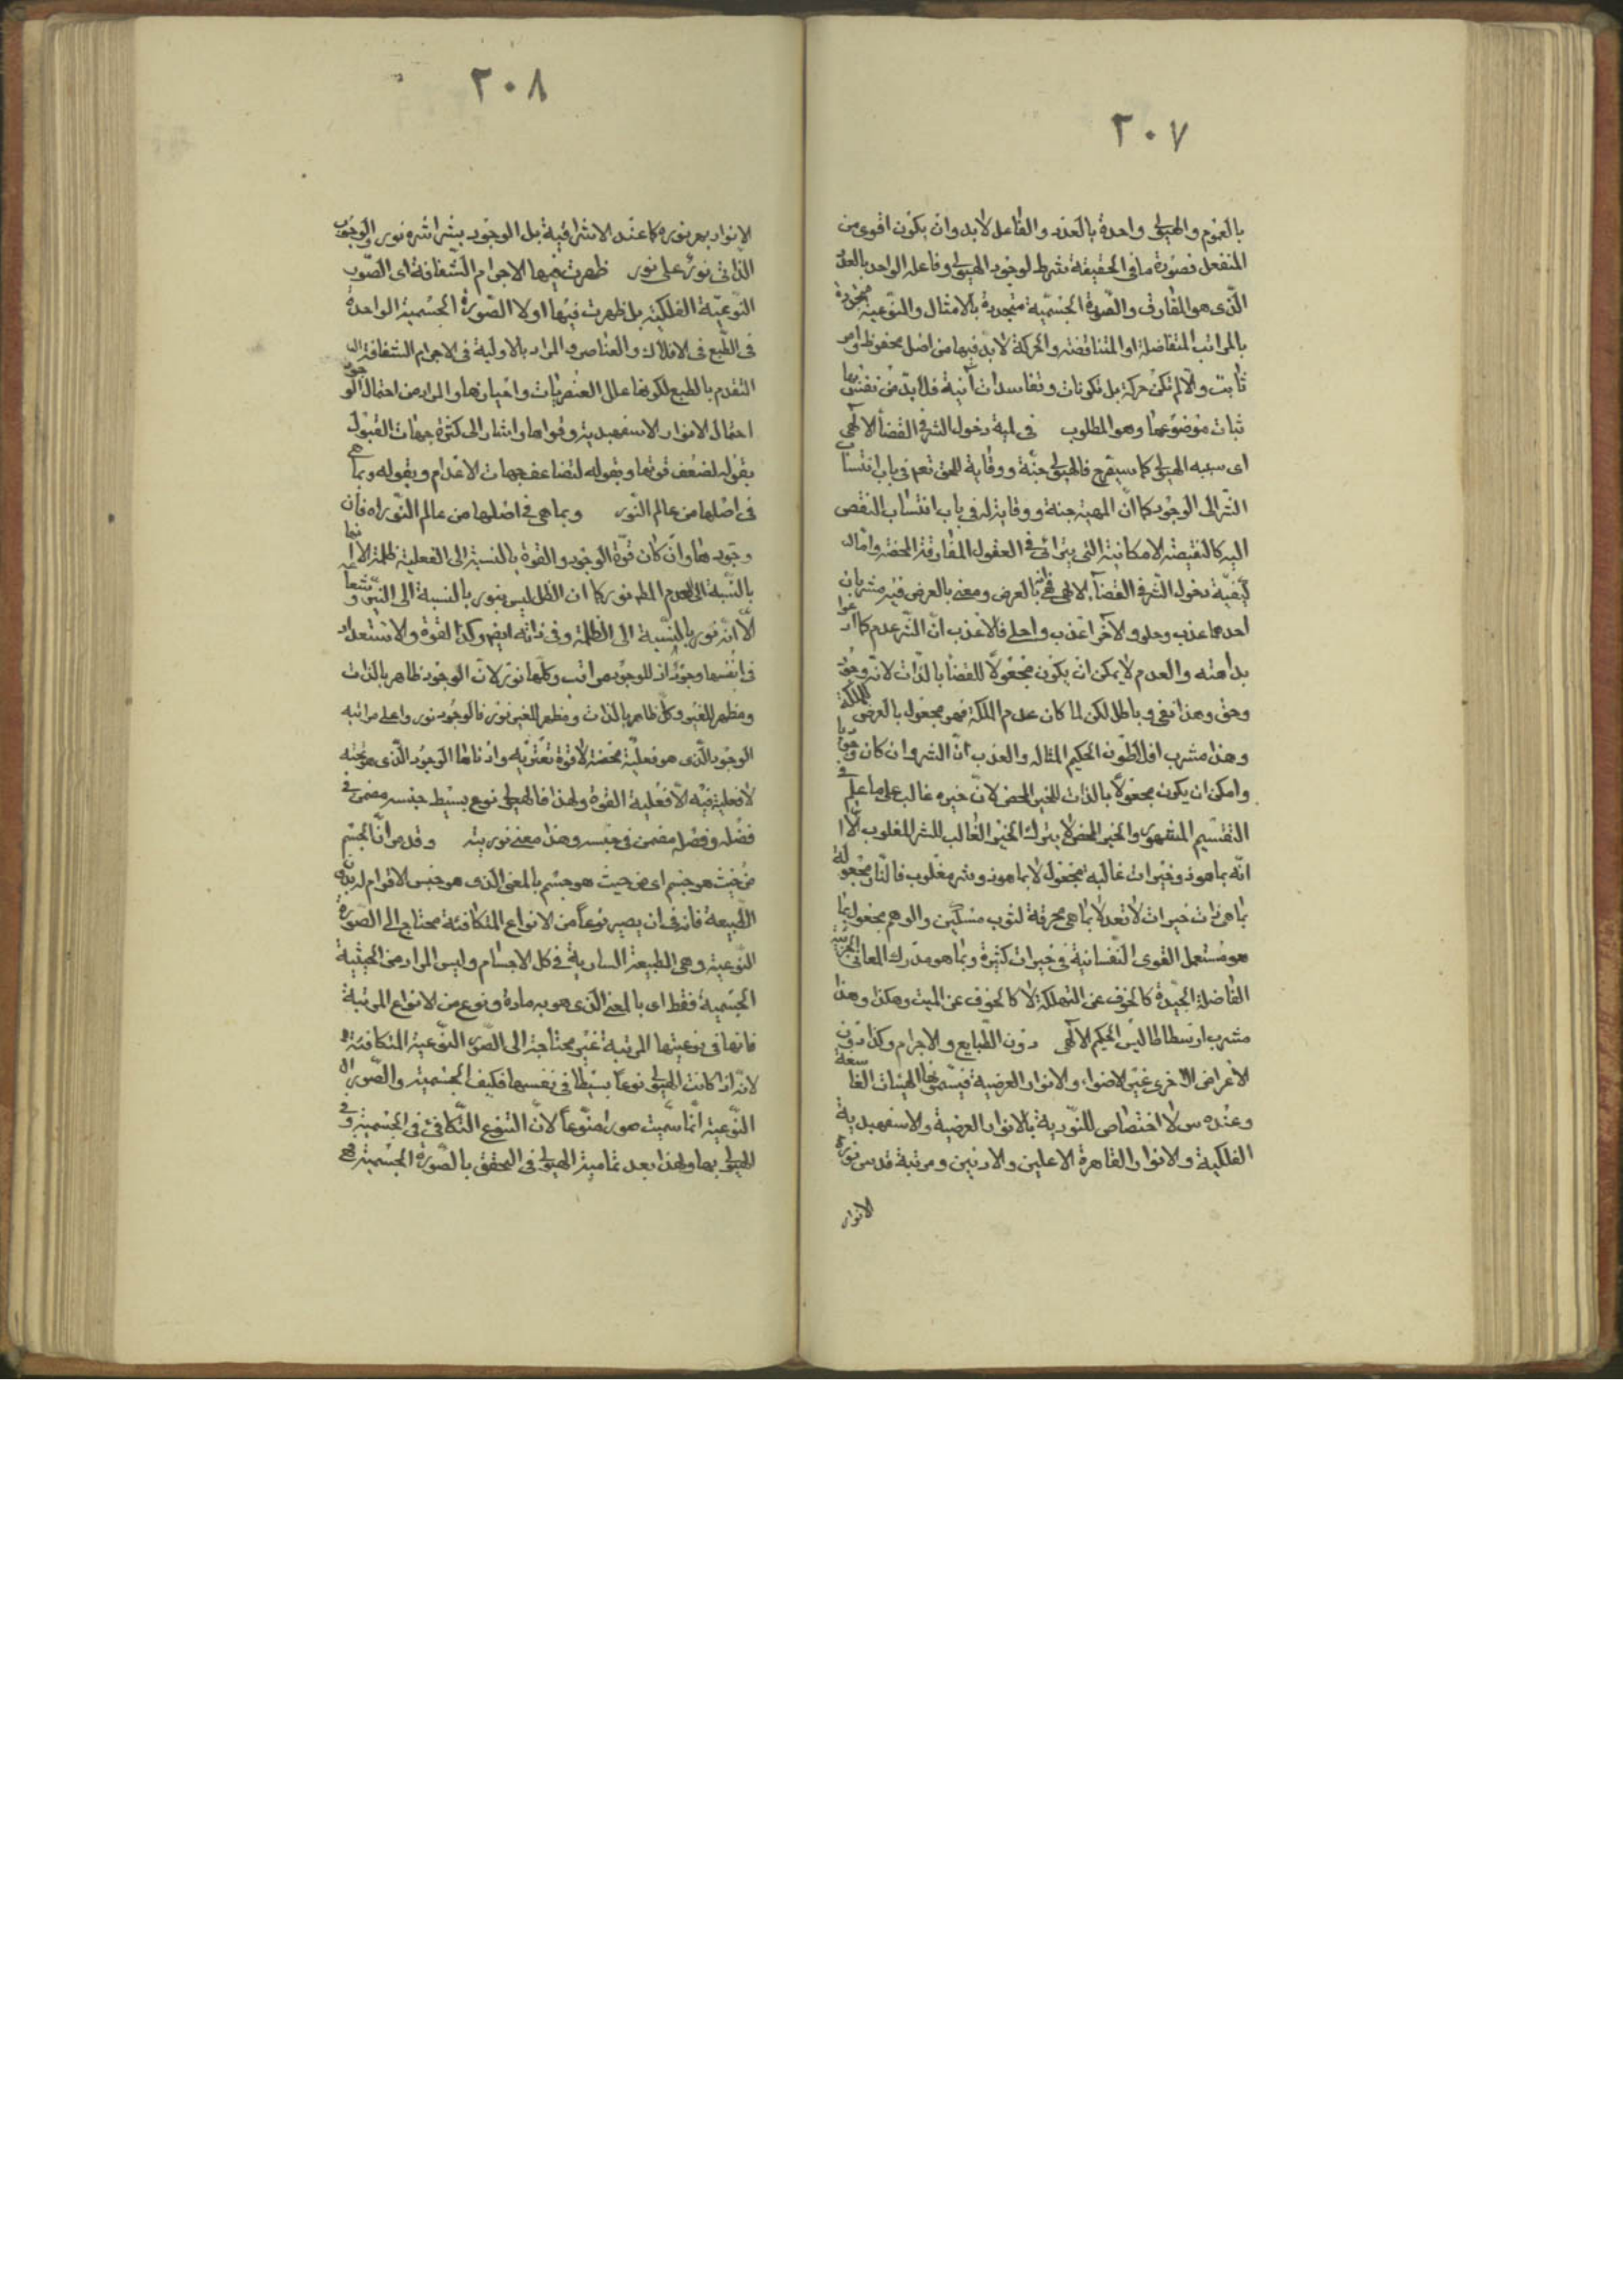 ٢٠٧
بالعموم والهيولى واحدة بالعدد والفاعل لابد وان يكون اقوى من
المنفعل فصورة ما فى الحقيقة شرط لوجود الهيولى وفاعله الواحد بالعدد
الّذى هو المفارق والصورة الجسميّة متجددة بالامثال والنّوعية متجددة
بالمراتب المتفاضلة او المتناقضة والحركة لابد فيها من اصل محفوظ وامر
ثابت والّا لم تكن حركة بل تكونات وتفاسدات آنية فلابدّ من
ثبات موضوعها وهو المطلوب فى لمية دخول الشر فى القضاء الالٓهى
اى سببه الهيولى كما سيصرح فالهيولى جنّة ووقاية للحق تعم فى باب انتساب
الشّر الى الوجود كما انّ المهية جنة ووقاية له فى باب انتساب النقص
اليه كالنقيصة الامكانية التى يترائى فى العقول المفارقة المحضة وامّا
كيفيّة دخول الشّر فى القضآء الالهى فى انه بالعرض ومعنى بالعرض فيه مشربان
احدهما عذب وحلو والآخر اعذب واحلى فالاعذب انّ الشّر عدم كما ادعوا
بداهته والعدم لا يمكن ان يكون مجعولًا للقضا بالذات لانّه وجود
وحق وهذا نفى وباطل لكن لما كان عدم الملكة فهو مجعول بالعرض للملكة
وهذا مشرب افلاطون الحكيم المتاله والعذب انّ الشر وان كان وجوديا
وامكن ان يكون مجعولًا بالذات للخير المحض لانّ خيره غالب على ما علم فى
التقسيم المشهور والخير المحض لا يترك الخير الغالب للشر المغلوب الّا
انّه بما هو ذو خيرات غالبة مجعول لا بما هو ذو شر مغلوب فالنّار مجعولة
بما هى ذات خيرات لا تعد لا بما هى محرقة لثوب مسكين والوهم مجعول بما
هو مستعمل القوى النّفسانية فى خيرات كثيرة وبما هو مدرك المعانى الجزئية
الفاضلة الجيّدة كالخوف عن التهلكة لا كالخوف عن الميت وهكذا وهذا
مشرب ارسطاطاليس الحكيم الالٓهى دون الطّبايع والاجرام وكذا دون
الاعراض الاخرى غير الاضواء والانوار العرضية فيسمونها الهيئات الغاسقة
وعنده س لا اختصاص للنّورية بالانوار العرضية والاسفهبدية
الفلكية والانوار القاهرة الاعلين والادنين ومرتبة قدس نورة
الانوار
٢٠٨
الانوار بهر نوره كما عند الاشراقية بل الوجود بشراشره نور والوجوب
الذاتى نورٌ على نور ظهرت فيها الاجرام الشّفافة اى الصّور
النّوعيّة الفلكية بل ظهرت فيها اولا الصّورة الجسمية الواحدة
فى الطّبع فى الافلاك والعناصر والمراد بالاولية فى الاجرام الشفافة
التقدم بالطبع لكونها علل العنصريّات واحيازها والمراد من احتمال الوجود
احتمال الانوار الاسفهبدية وقواها واشار الى كثرة جهات القبول
بقوله لضعف قوتها وبقوله لتضاعف جهات الاعدام وبقوله وبما هى
فى اصلها من عالم النّور وبما هى فى اصلها من عالم النّور اه فان
وجودها وان كان قوّة الوجود والقوة بالنسبة الى الفعلية ظلمة الا انها
بالنّسبة الى العدم المظلم نور كما ان الظل ليس بنور بالنسبة الى النيّر وشعاعه
الّا انّه نور بالنّسبة الى الظلمة وفى ذاته ايضا وكذا القوة والاستعداد
فى انفسها وجودٌ اذ للوجود مراتب وكلها نور لانّ الوجود ظاهر بالذات
ومظهر للغير وكل ظاهر بالذات ومظهر للغير نور فالوجود نور واعلى مراتبه
الوجود الّذى هو فعليّة محضة لا قوة تعتريه وادناها الوجود الّذى هو
لا فعلية فيه الّا فعلية القوة ولهذا فالهيولى نوع بسيط جنسه مضمن فى
فصله وفصله مضمن فى جنسه وهذا معنى نوريته وقد مر انّ الجسم
من حيث هو جسم اى من حيث هو جسم بالمعنى الّذى هو جنس لا قوام له بدون
الطّبيعة فانه فى ان يصير نوعاً من الانواع المتكافئة محتاج الى الصورة
النّوعية وهى الطبيعة السارية فى كل الاجسام وليس المراد من الحيثية
الجسمية فقط اى بالمعنى الّذى هو به مادة ونوع من الانواع المرتبة
فانها فى نوعيتها المرتبة غير محتاجة الى الصّور النّوعية المتكافئة
لانّه اذ كانت الهيولى نوعاً بسيطاً فى نفسها فكيف الجسمية والصّور
النّوعية انّما سمّيت صورا منوّعاً لانّ التنوع التّكافئ فى الجسمية وفى
الهيولى بها ولهذا بعد تمامية الهيولى فى التحقق بالصّورة الجسمية فهى